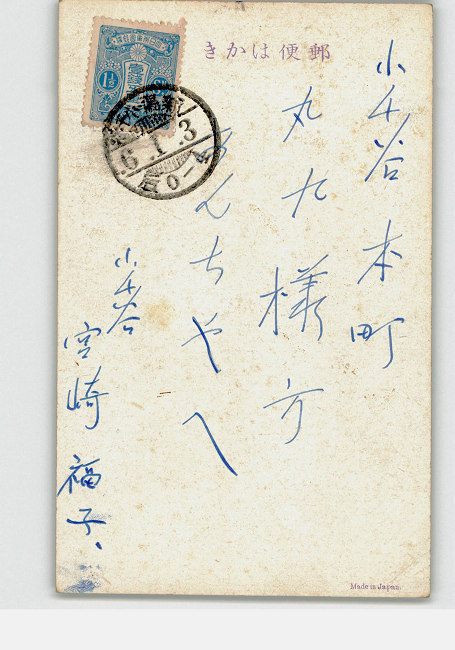 郵便はかき
小千谷本町
丸九様方
ちやへ
小千谷
宮崎福子、
6.1.3
1½
Made in Japan.